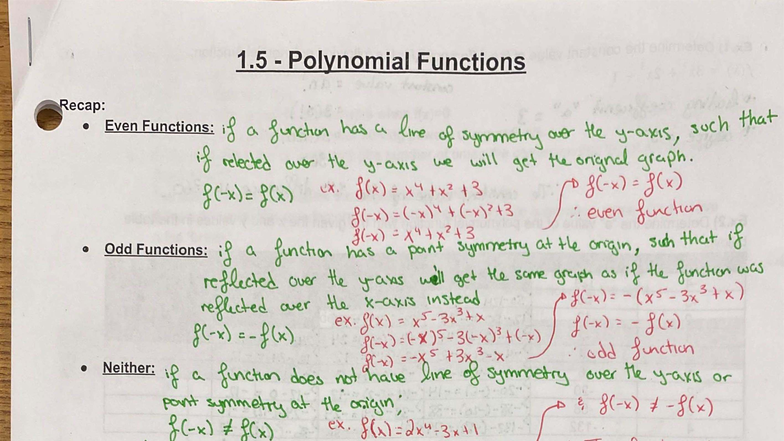 1.5 - Polynomial Functions
Recap:
• Even Functions: if a function has a line of symmetry over the y-axis, such that
if relected over the y-axis we will get the orignal graph.
f(-x) = f(x) ex. f(x) = x⁴ + x² + 3 f(-x) = f(x)
f(-x) = (-x)⁴ + (-x)² + 3 ∴ even function
f(-x) = x⁴ + x² + 3
• Odd Functions: if a function has a point symmetry at the origin, such that if
reflected over the y-axis will get the same graph as if the function was
reflected over the x-axis instead f(-x) = - (x⁵ - 3x³ + x)
ex. f(x) = x⁵ - 3x³ + x
f(-x) = - f(x) f(-x) = (-x)⁵ - 3(-x)³ + (-x) f(-x) = - f(x)
f(-x) = -x⁵ + 3x³ - x ∴ odd function
• Neither: if a function does not have line of symmetry over the y-axis or
point symmetry at the origin; & f(-x) ≠ -f(x)
f(-x) ≠ f(x) ex. f(x) = 2x⁴ - 3x + 1